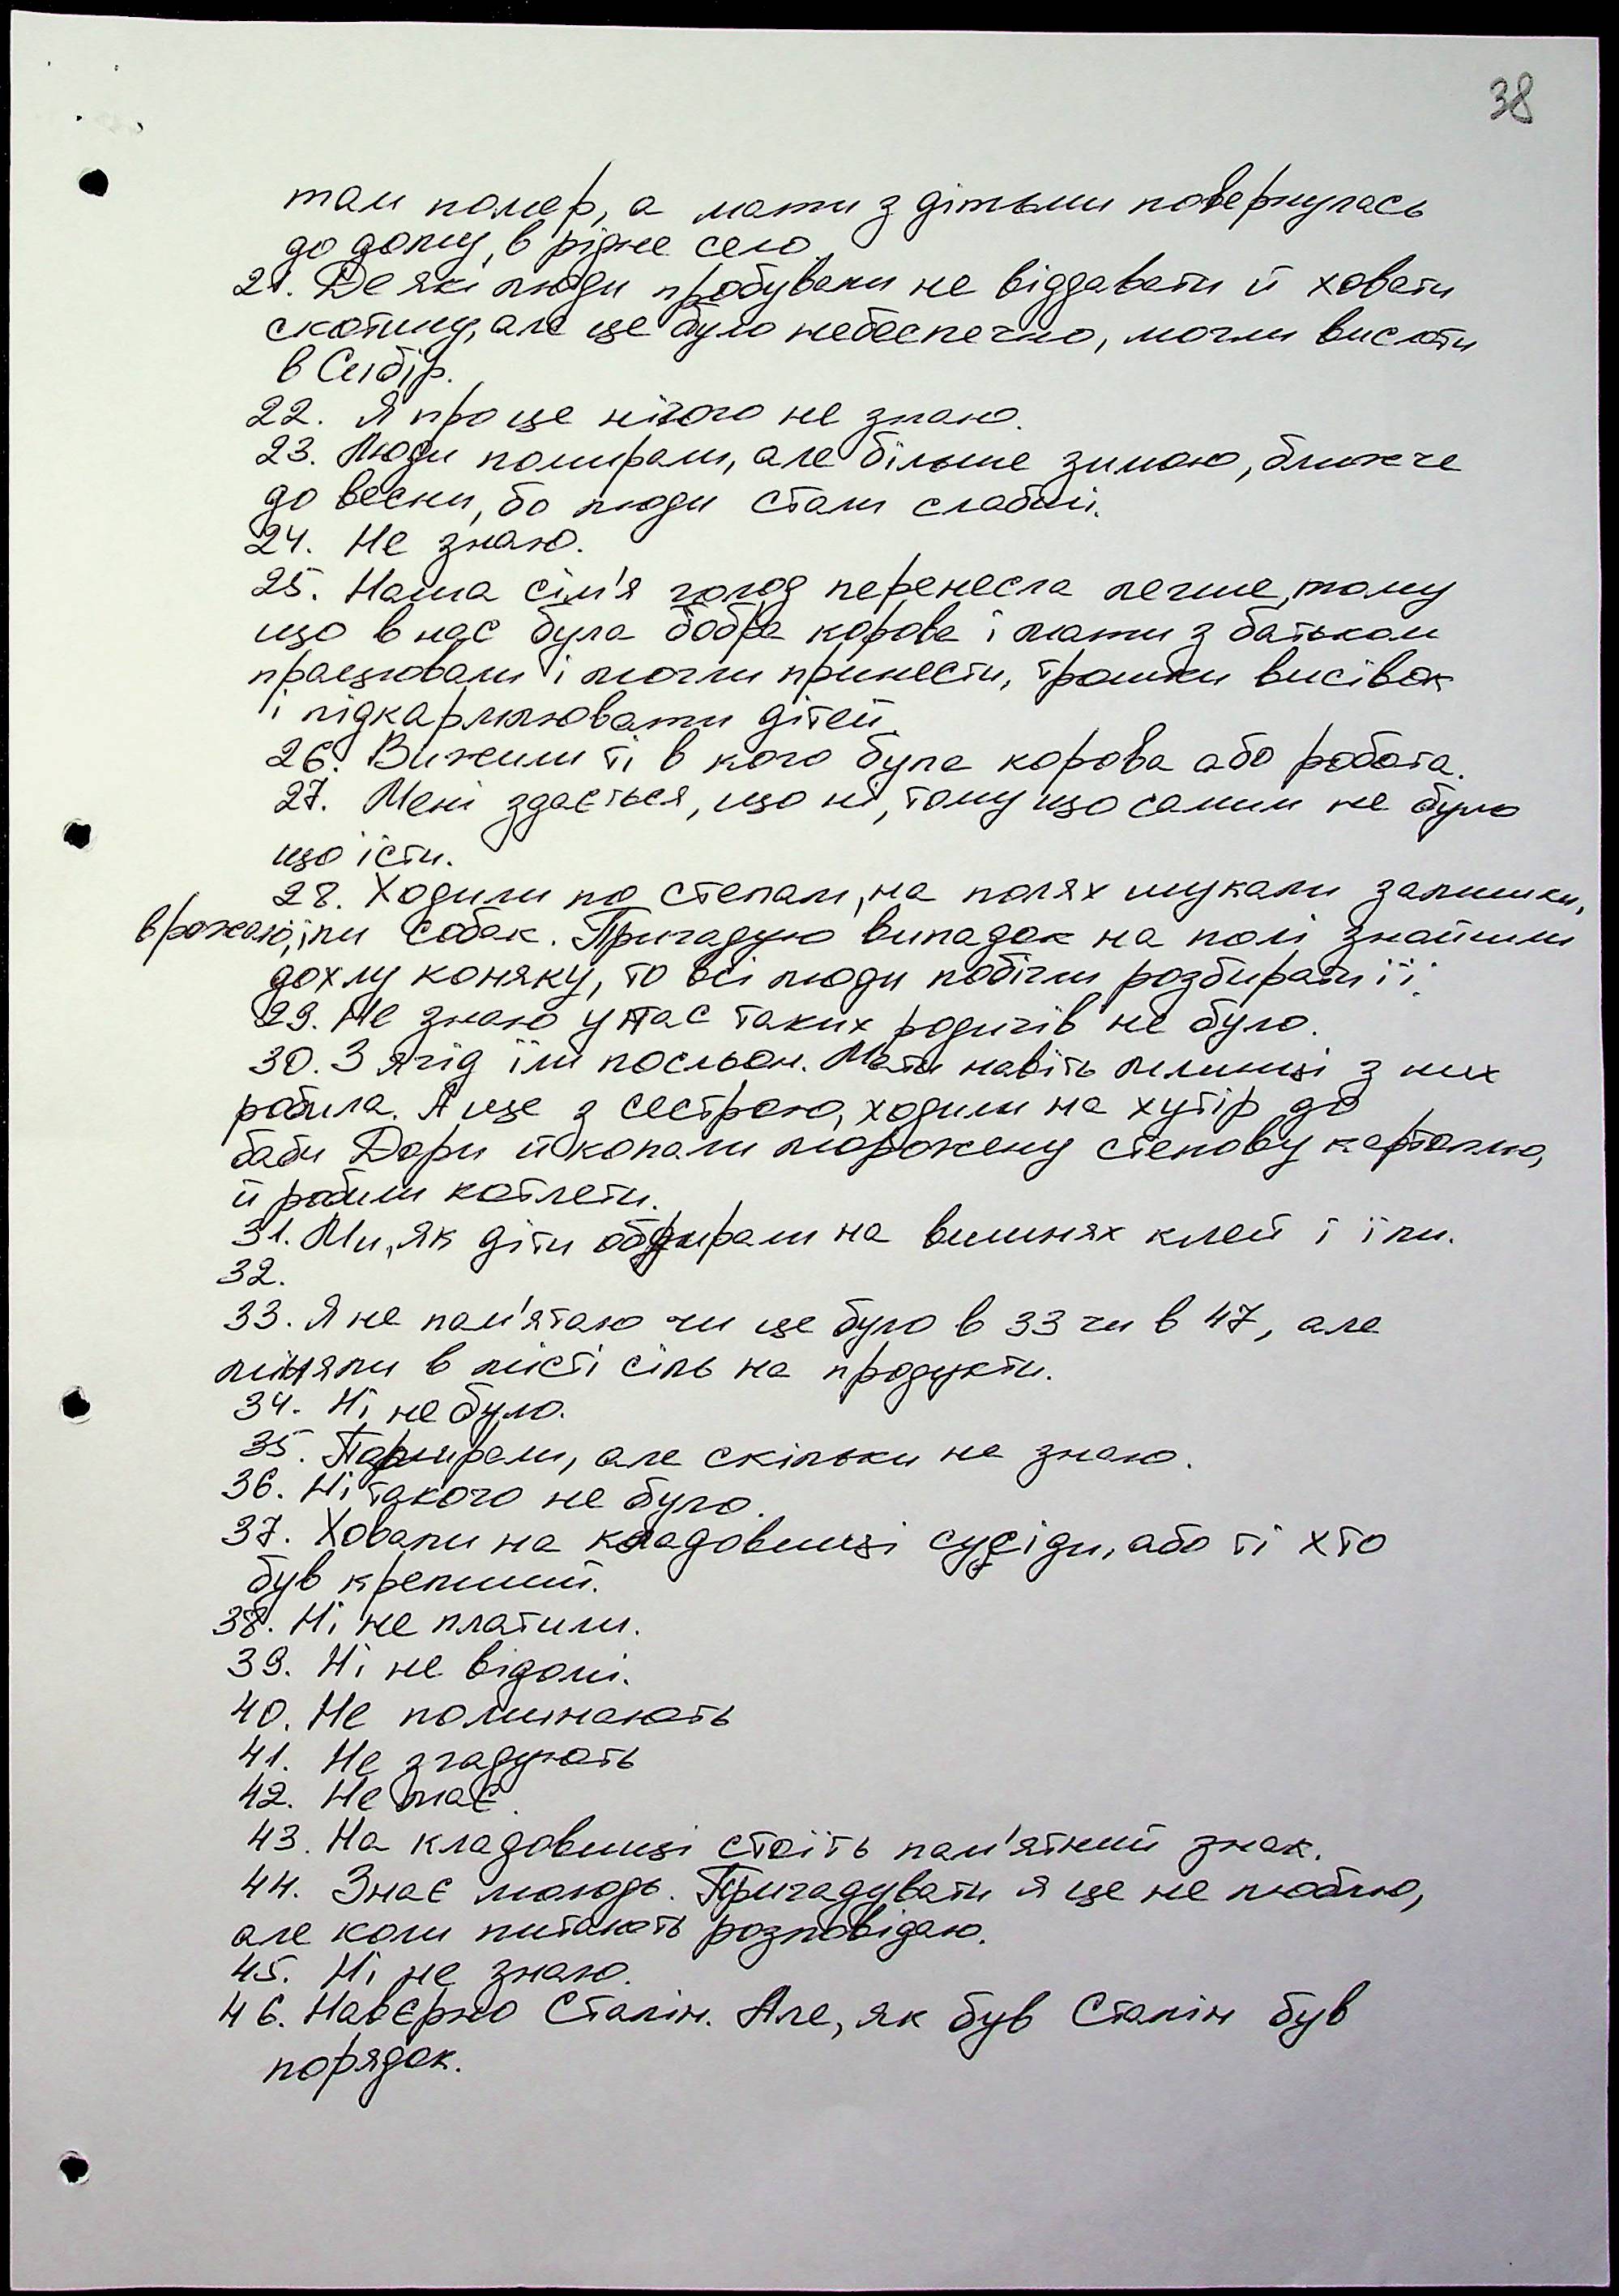 38
там помер, а мати з дітьми повернулась
до дому, в рідне село.
21. Де які люди пробували не віддавати й ховати
скотину, але це було небеспечно, могли вислати
в Сибір.
22. Я про це нічого не знаю.
23. Люди помирали, але більше зимою, ближче
до весни, бо люди стали слабші.
24. Не знаю.
25. Наша сім'я голод перенесла легше, тому
що в нас була добра корова і мати з батьком
працювали і могли принести, трошки висівок
і підкармлювати дітей.
26. Вижили ті в кого була корова або робота.
27. Мені здається, що ні, тому що самим не було
що їсти.
28. Ходили по степам, на полях шукали залишки,
врожаю, їли собак. Пригадую випадок на полі знайшли
дохлу коняку, то всі люди побігли розбирати її.
29. Не знаю у нас таких родичів не було.
30. З ягід їли посльон. Мати навіть млинці з них
робила. А ще з сестрою, ходили на хутір до
баби Дори й копали морожену степову картоплю,
й робили котлети.
31. Ми, як діти обдирали на вишнях клей і їли.
32.
33. Я не пам'ятаю чи це було в 33 чи в 47, але
міняли в місті сіль на продукти.
34. Ні, не було.
35. Помирали, але скільки не знаю.
36. Ні такого не було.
37. Ховали на кладовищі сусіди, або ті хто
був крепший.
38. Ні не платили.
39. Ні не відомі.
40. Не поминають
41. Не згадують
42. Не має.
43. На кладовищі стоїть пам'ятний знак.
44. Знає молодь. Пригадувати я це не люблю,
але коли питають розповідаю.
45. Ні не знаю.
46. Навєрно Сталін. Але, як був Сталін був
порядок.